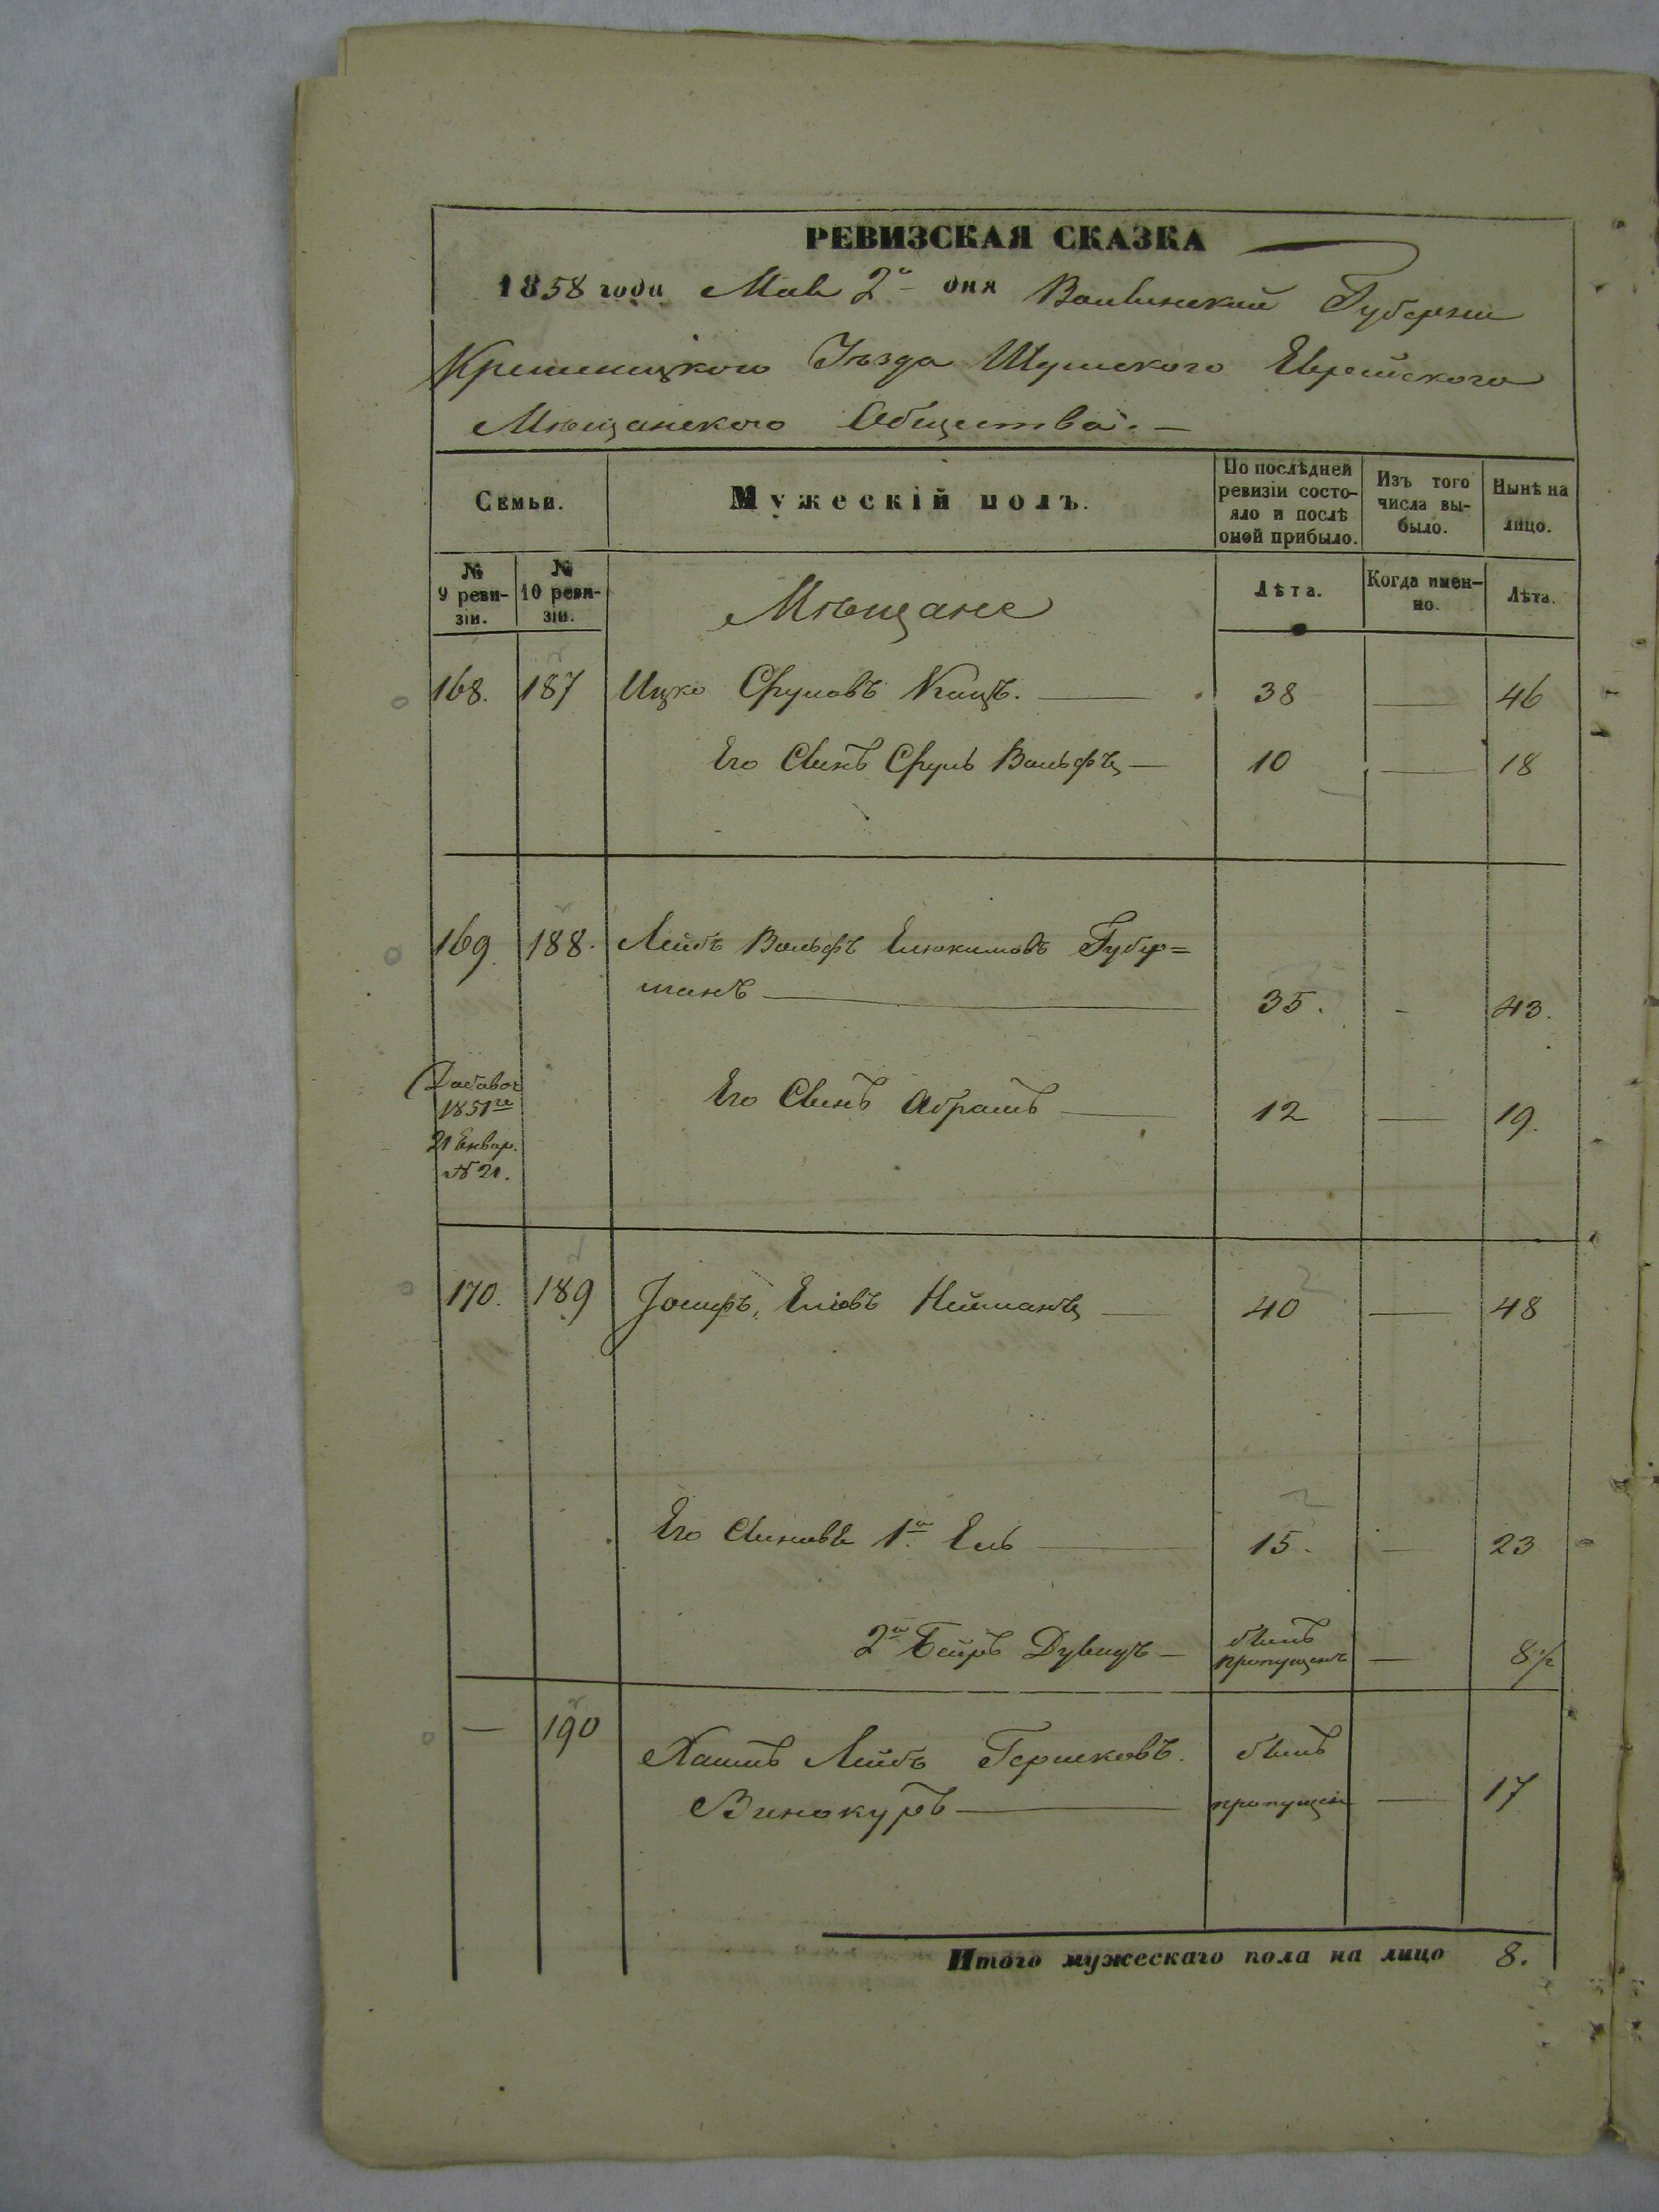 РЕВИЗСКАЯ СКАЗКА
1858 года Мая 2го дня Волынской Губерніи
Кременецкого Уѣзда Шумского Еврейского
Мѣщанского Общества.—
Семьи.
Мужескій полъ.
По послѣдней ревизіи состояло и послѣ оной прибыло.
Изъ того числа выбыло.
Нынѣ на лицо.
№ 9 ревизіи.
№ 10 ревизіи.
Мѣщане
Лѣта.
Когда именно.
Лѣта.
168. 187 Ицко Сруловъ Кацъ. — 38 — 46
Его Сынъ Сруль Вольфъ — 10 — 18
169. 188. Лейбъ Вольфъ Елюкимовъ Губер=
манъ — 35. - 43.
Добавоч
1851го
21 Енвар.
№ 21.
Его Сынъ Абрамъ — 12 — 19.
170. 189 Іосифъ Еліовъ Нейманъ — 40 — 48
Его Сыновья 1й Ель — 15. — 23
2й Беиръ Дувидъ — былъ пропущенъ — 8½
— 190 Хаимъ Лейбъ Гершковъ. былъ
Винокуръ — пропущен — 17
Итого мужескаго пола на лицо 8.